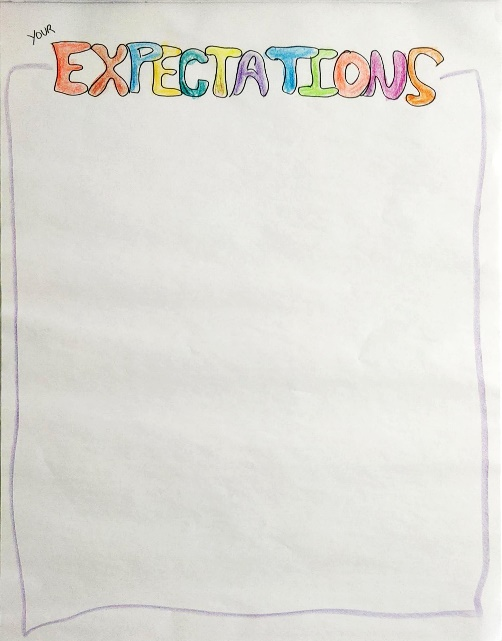 YOUR
EXPECTATIONS